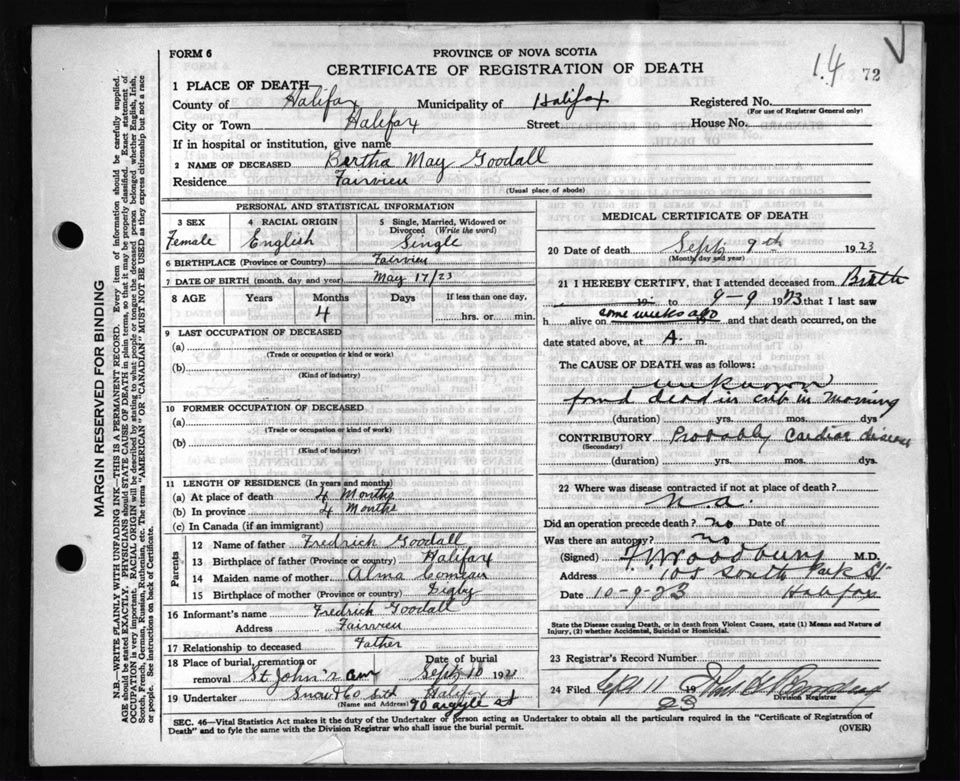 FORM 6
PROVINCE OF NOVA SCOTIA
CERTIFICATE OF REGISTRATION OF DEATH
1.4 72
1 PLACE OF DEATH
County of Halifax Municipality of Halifax Registered No.
(For use of Registrar General only)
City or Town Halifax Street House No.
If in hospital or institution, give name
2 NAME OF DECEASED Bertha May Goodall
Residence Fairview
(Usual place of abode)
PERSONAL AND STATISTICAL INFORMATION
3 SEX 4 RACIAL ORIGIN 5 Single, Married, Widowed or Divorced (Write the word)
Female English Single
6 BIRTHPLACE (Province or Country) Fairview
7 DATE OF BIRTH (month, day, and year) May 17/23
8 AGE Years Months Days If less than one day,
4 hrs. or min.
9 LAST OCCUPATION OF DECEASED
(a)
(Trade or occupation or kind or work)
(b)
(Kind of industry)
10 FORMER OCCUPATION OF DECEASED
(a)
(Trade or occupation or kind of work)
(b)
(Kind of industry)
11 LENGTH OF RESIDENCE (In years and months)
(a) At place of death 4 Months
(b) In province 4 Months
(c) In Canada (if an immigrant)
Parents
12 Name of father Fredrich Goodall
13 Birthplace of father (Province or country) Halifax
14 Maiden name of mother Alma Comeau
15 Birthplace of mother (Province or country) Digby
16 Informant's name Fredrich Goodall
Address Fairview
17 Relationship to deceased Father
18 Place of burial, cremation or removal St John's Date of burial Sept 10 192
19 Undertaker Snow & Co Ltd Halifax
(Name and Address) 90 argyle st
MEDICAL CERTIFICATE OF DEATH
20 Date of death Sept 9th 1923
(Month, day and year)
21 I HEREBY CERTIFY, that I attended deceased from Birth
19 to 9-9 1923 that I last saw
h alive on some weeks ago 19 and that death occurred, on the
date stated above, at A. m.
The CAUSE OF DEATH was as follows:
unknown
found dead in crib in morning
(duration) yrs. mos. dys
CONTRIBUTORY Probably cardiac disease
(Secondary)
(duration) yrs. mos. dys.
22 Where was disease contracted if not at place of death?
n.a.
Did an operation precede death? no Date of
Was there an autopsy? no
(Signed) F. Woodbury M.D.
Address 105 South Park St
Date 10-9-23 Halifax
State the Disease causing Death, or in death from Violent Causes, state (1) Means and Nature of Injury, (2) whether Accidental, Suicidal or Homicidal.
23 Registrar's Record Number
24 Filed Sept 11 19 23
Division Registrar
SEC. 46—Vital Statistics Act makes it the duty of the Undertaker or person acting as Undertaker to obtain all the particulars required in the "Certificate of Registration of
Death" and to fyle the same with the Division Registrar who shall issue the burial permit. (OVER)
MARGIN RESERVED FOR BINDING
N.B.—WRITE PLAINLY WITH UNFADING INK—THIS IS A PERMANENT RECORD. Every item of information should be carefully supplied.
AGE should be stated EXACTLY. PHYSICIANS should STATE CAUSE OF DEATH in plain terms, so that it may be properly classified. Exact statement of
OCCUPATION is very important. RACIAL ORIGIN will be described by stating to what people or tongue the deceased person belonged whether English, Irish,
Scotch, French, German, Russian, Ruthenian, etc. The terms "AMERICAN" OR "CANADIAN" MUST NOT BE USED as they express citizenship but not a race
or people. See instructions on back of Certificate.